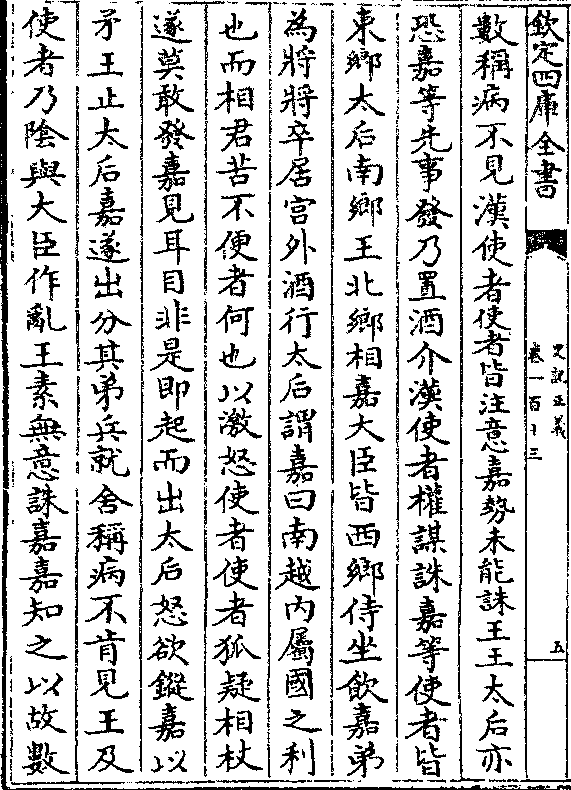 欽定四庫全書
史記正義
卷一百十三
五
數稱病不見漢使者使者皆注意嘉勢未能誅王王太后亦
恐嘉等先事發乃置酒介漢使者權謀誅嘉等使者皆
東鄉太后南鄉王北鄉相嘉大臣皆西鄉侍坐飲嘉弟
為將將卒居宫外酒行太后謂嘉曰南越内屬國之利
也而相君苦不便者何也以激怒使者使者狐疑相杖
遂莫敢發嘉見耳目非是即起而出太后怒欲鏦嘉以
矛王止太后嘉遂出分其弟兵就舍稱病不肯見王及
使者乃陰與大臣作亂王素無意誅嘉嘉知之以故數